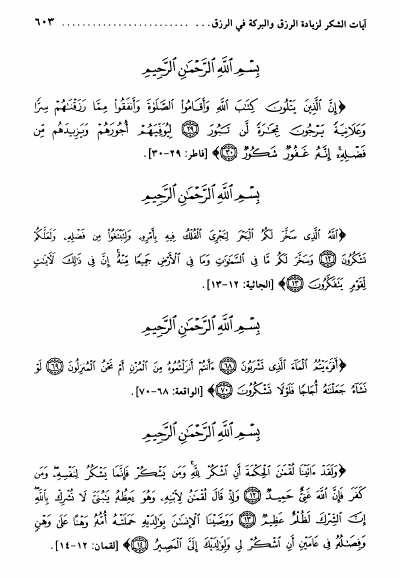 آيات الشكر لزيادة الرزق والبركة في الرزق . . . . . . . . . . . . . . . . . . . . . . . . . . ٦٠٣
بِسْمِ ٱللَّهِ ٱلرَّحْمَٰنِ ٱلرَّحِيمِ
﴿إِنَّ ٱلَّذِينَ يَتْلُونَ كِتَٰبَ ٱللَّهِ وَأَقَامُوا۟ ٱلصَّلَوٰةَ وَأَنفَقُوا۟ مِمَّا رَزَقْنَٰهُمْ سِرًّا
وَعَلَانِيَةً يَرْجُونَ تِجَٰرَةً لَّن تَبُورَ ﴿٢٩﴾ لِيُوَفِّيَهُمْ أُجُورَهُمْ وَيَزِيدَهُم مِّن
فَضْلِهِۦٓ إِنَّهُۥ غَفُورٌ شَكُورٌ ﴿٣٠﴾﴾ [فاطر: ٢٩-٣٠].
بِسْمِ ٱللَّهِ ٱلرَّحْمَٰنِ ٱلرَّحِيمِ
﴿ٱللَّهُ ٱلَّذِى سَخَّرَ لَكُمُ ٱلْبَحْرَ لِتَجْرِىَ ٱلْفُلْكُ فِيهِ بِأَمْرِهِۦ وَلِتَبْتَغُوا۟ مِن فَضْلِهِۦ وَلَعَلَّكُمْ
تَشْكُرُونَ ﴿١٢﴾ وَسَخَّرَ لَكُم مَّا فِى ٱلسَّمَٰوَٰتِ وَمَا فِى ٱلْأَرْضِ جَمِيعًا مِّنْهُ إِنَّ فِى ذَٰلِكَ لَءَايَٰتٍ
لِّقَوْمٍ يَتَفَكَّرُونَ ﴿١٣﴾﴾ [الجاثية: ١٢-١٣].
بِسْمِ ٱللَّهِ ٱلرَّحْمَٰنِ ٱلرَّحِيمِ
﴿أَفَرَءَيْتُمُ ٱلْمَآءَ ٱلَّذِى تَشْرَبُونَ ﴿٦٨﴾ ءَأَنتُمْ أَنزَلْتُمُوهُ مِنَ ٱلْمُزْنِ أَمْ نَحْنُ ٱلْمُنزِلُونَ ﴿٦٩﴾ لَوْ
نَشَآءُ جَعَلْنَٰهُ أُجَاجًا فَلَوْلَا تَشْكُرُونَ ﴿٧٠﴾﴾ [الواقعة: ٦٨-٧٠].
بِسْمِ ٱللَّهِ ٱلرَّحْمَٰنِ ٱلرَّحِيمِ
﴿وَلَقَدْ ءَاتَيْنَا لُقْمَٰنَ ٱلْحِكْمَةَ أَنِ ٱشْكُرْ لِلَّهِ وَمَن يَشْكُرْ فَإِنَّمَا يَشْكُرُ لِنَفْسِهِۦ وَمَن
كَفَرَ فَإِنَّ ٱللَّهَ غَنِىٌّ حَمِيدٌ ﴿١٢﴾ وَإِذْ قَالَ لُقْمَٰنُ لِٱبْنِهِۦ وَهُوَ يَعِظُهُۥ يَٰبُنَىَّ لَا تُشْرِكْ بِٱللَّهِ
إِنَّ ٱلشِّرْكَ لَظُلْمٌ عَظِيمٌ ﴿١٣﴾ وَوَصَّيْنَا ٱلْإِنسَٰنَ بِوَٰلِدَيْهِ حَمَلَتْهُ أُمُّهُۥ وَهْنًا عَلَىٰ وَهْنٍ
وَفِصَٰلُهُۥ فِى عَامَيْنِ أَنِ ٱشْكُرْ لِى وَلِوَٰلِدَيْكَ إِلَىَّ ٱلْمَصِيرُ ﴿١٤﴾﴾ [لقمان: ١٢-١٤].